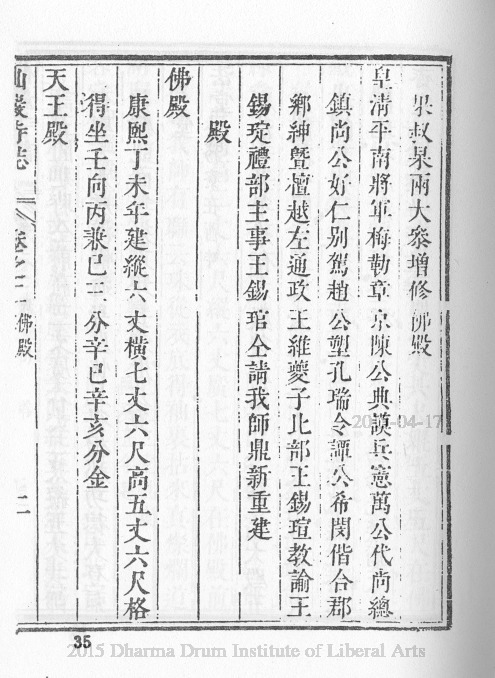 果叔杲兩大衆增修佛殿
皇清平南將軍梅勒章京陳公典謨兵憲萬公代尚總
鎮尚公好仁別駕趙公塑孔瑞令譚公希閔偕合郡
鄉紳暨檀越左通政王維夔子比部王錫瑄教諭王
錫琁禮部主事王錫琯仝請我師鼎新重建
殿
佛殿
康熙丁未年建縱六丈橫七丈六尺高五丈六尺格
得坐壬向丙兼巳三分辛巳辛亥分金
天王殿
仙巖寺誌 卷之二 佛殿 二
35
2015 Dharma Drum Institute of Liberal Arts